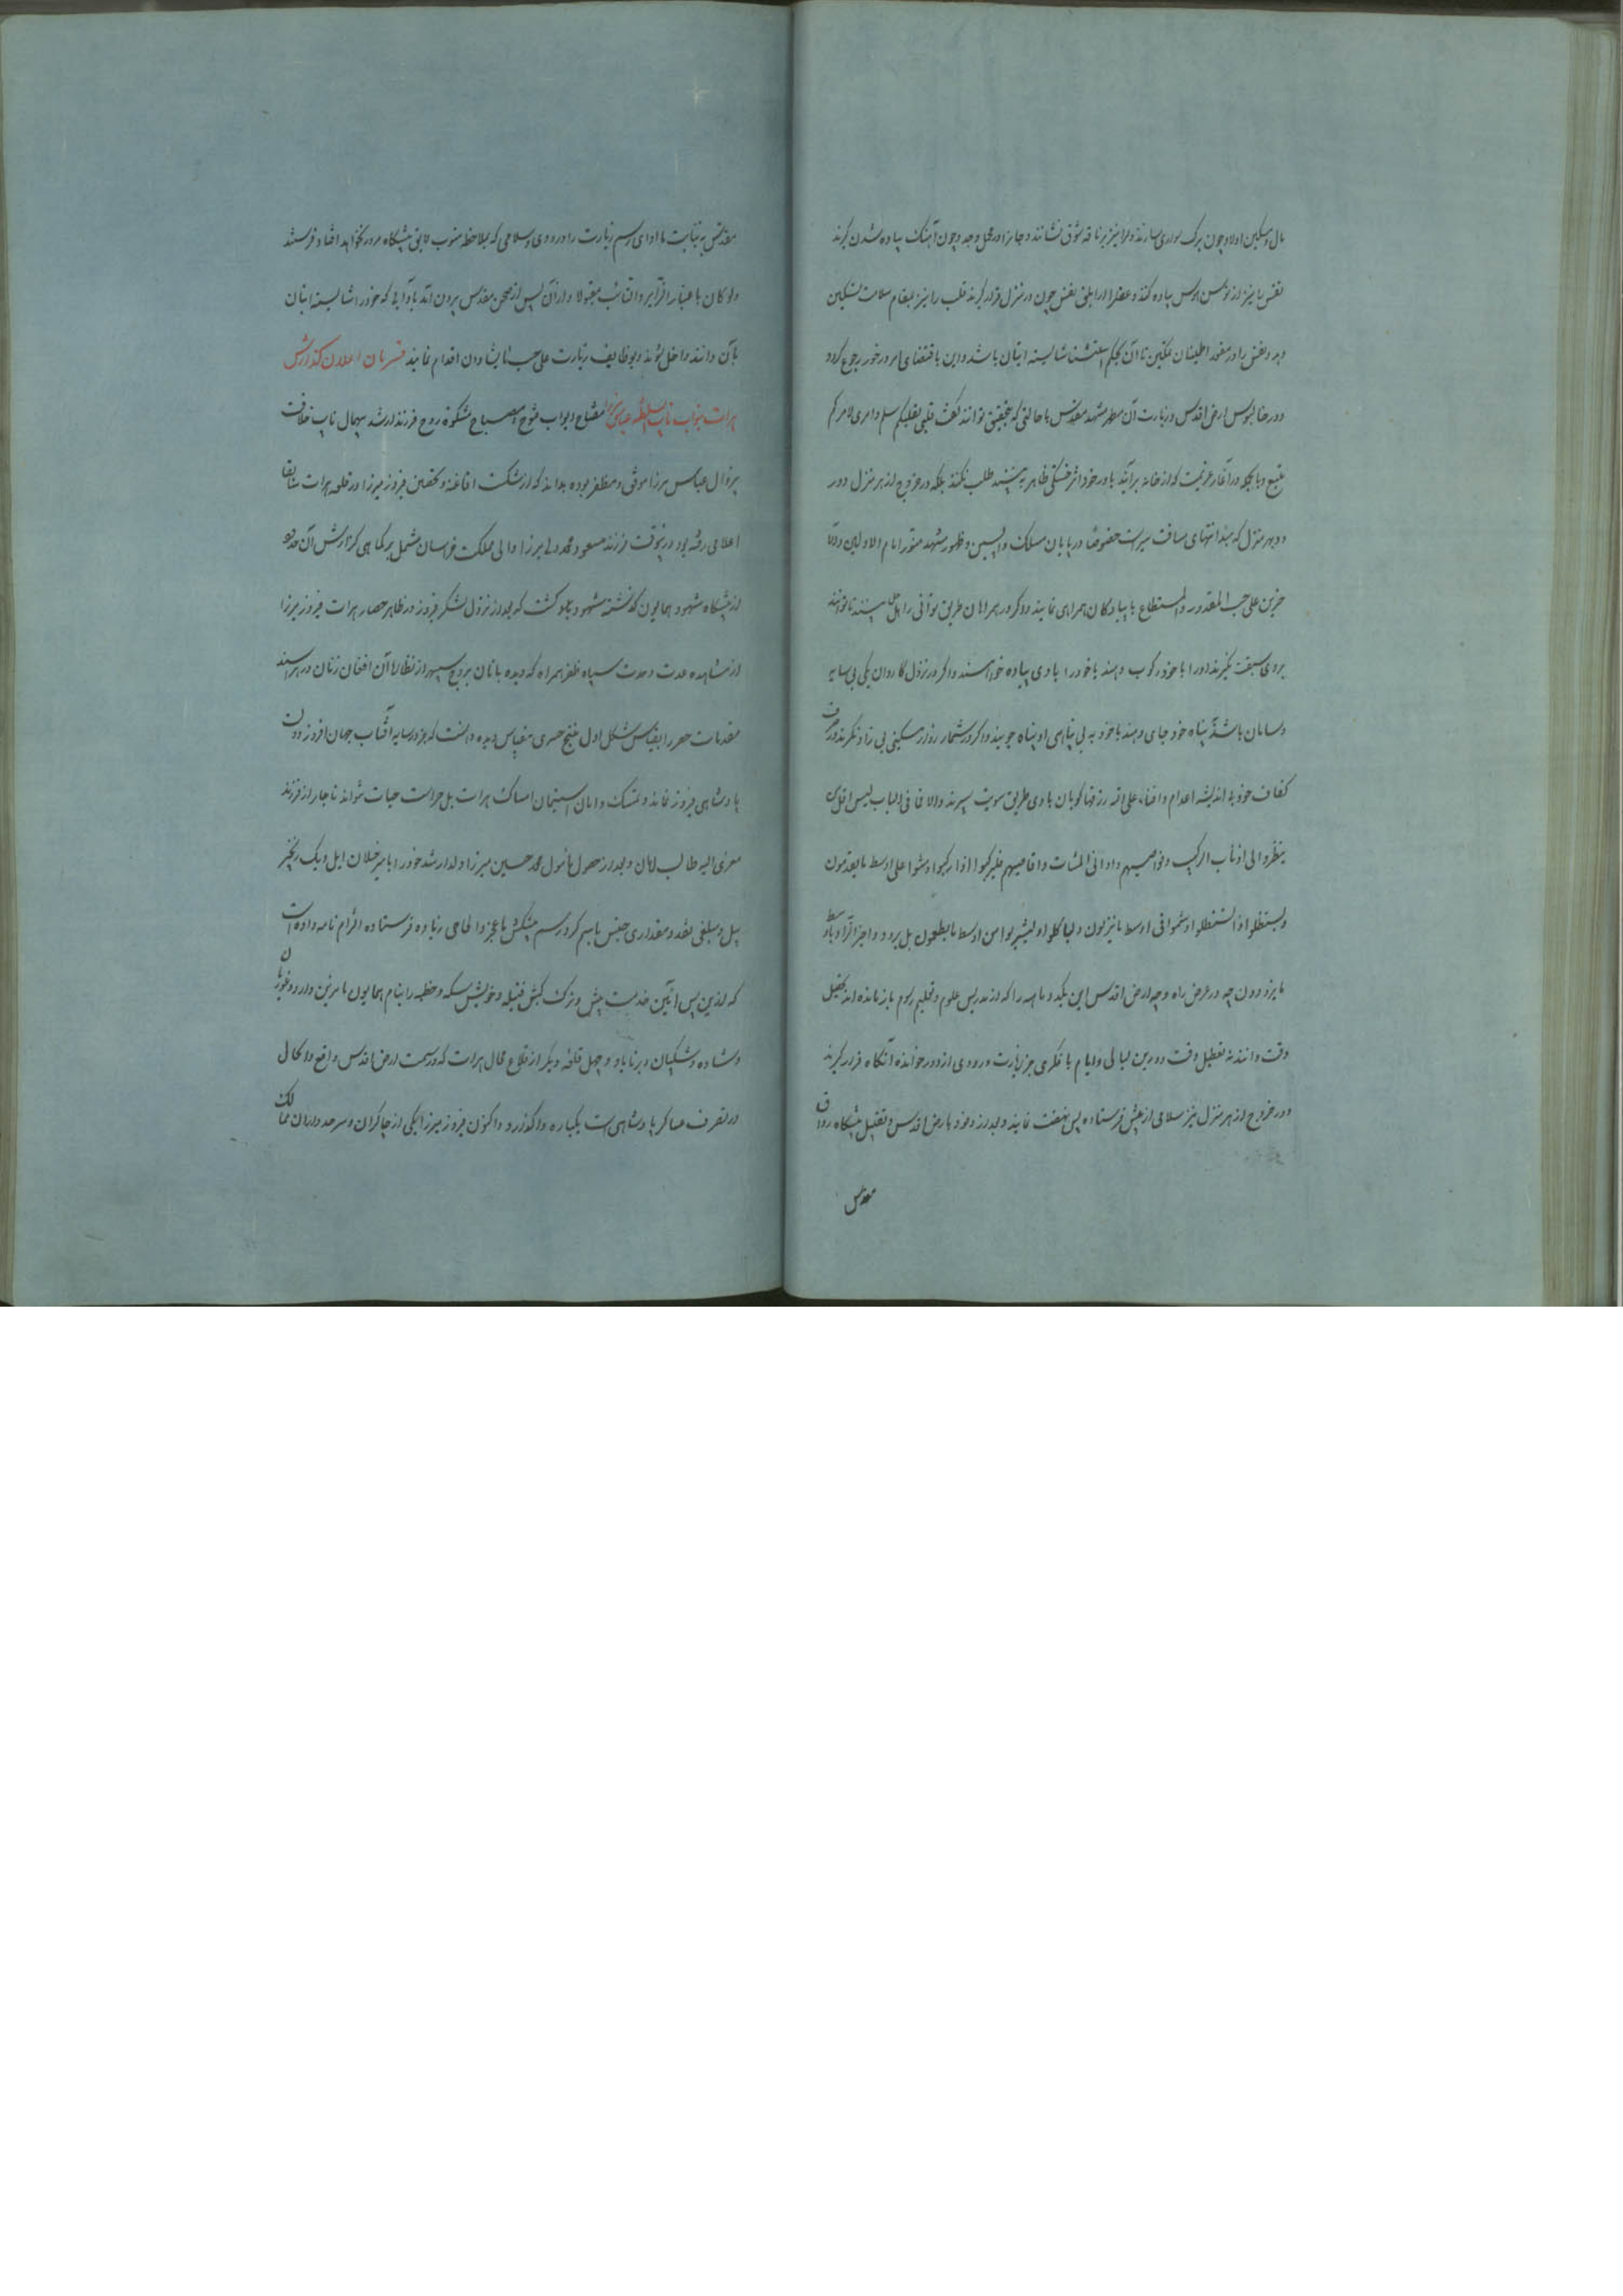 مال و مسکین اولاد چون برک سواری سازند دلرا نیز بر ناقه شوق نشانند و جانرا در محمل وجد و چون آهنک پیاده شدن کیرند
نفس را نیز از توسن هوس پیاده کنند و عقل را در ابلق نفس چون در منزل قرار کیرند قلب را نیز بمقام سلامت تسکین
دهند و عشق را در مقعد اطمینان تمکین تا آن بحکم شایسته ایشان باشد و این باقتضای امر درخور رجوع کردد
و در خاکبوس ارض اقدس و زیارت آن مطهر مشهد مقدس با حالتی که بتحقیق توانند کفت قلبی لقلبکم سلم و امری لامرکم
متبع و بالجمله در آغاز عزیمت که از خانه برآیند باور خود اثر خستکی ظاهر نه پسندند طلب نکنند بلکه در خروج از هر منزل دور
و بهر منزل که مبدأ انتهای مسافت سیر است خصوصا در پایان مسلک واپسین و ظهور مشهد منور امام الاولین و الآ
خرین علی حسب المقدور و المستطاع با پیادکان همراهی نمایند و اکر در همراهان طریق ناتوانی راجل بینند تا توانند
بر وی سبقت نکیرند او را با خود رکوب دهند یا خود را با وی پیاده خواهند و اکر در نزول کاروان یکی بی سایه
و سامان باشد در پناه خود جای دهند یا خود به بی پناهی او پناه جویند و اکر در شمار روزی مسکینی بی زاد نکرند در صرف
کفاف خود نه اندیشه اعدام و افناء علی الله رزقها کویان با وی طریق سویت سپرند و الا فافی الباب لیس اقل من
ینظروا الی اذناب الرکب و نواصیهم و ادانی المشات و اقاصیهم فلیرکبوا اذا رکبوا و مشوا علی اوسط ما یقدمون
و لیستظلوا اذا استظلوا و شموا فی اوسط ما ینزلون و لیاکلوا و لیشربوا من اوسط ما یطعمون بل یرد و اجزا آرا و باوسط
ما یزودون چه در عرض راه و چه ارض اقدس این یکدو ماهه را که از تدریس علوم و تعلیم رسوم باز مانده اند تحصیل
وقت دانند نه تعطیل وقت و درین لیالی و ایام با فکری جز زیارت و درودی از دور خوانده آنکاه قرار کیرند
و در خروج از هر منزل نیز سلامی از پیش فرستاده پس نهضت نمایند و بعد از ورود بارض اقدس و تقبیل پیشکاه رواق
مقدس
مقدس به نیابت ما ادای رسم زیارت را درودی و سلامی که بملاحظه منوب لایق پیشکاه مزور خواهد افتاد فرستند
ولو کان باعتبار الزایر و النائب مقبولا و از آن پس از صحن مقدس بیرون آمده بآدابی که خود را شایسته اتیان
بآن دانند داخل شوند و بوظایف زیارت علی حسب ما یشاؤن اقدام نمایند فرمان اعلان کذارش
هرات بنواب نایب السلطنه عباس میرزا مفتاح ابواب فتوح و مصباح مشکوة روح فرزند ارشد بیهمال نایب خلافت
بیزوال عباس میرزا موفق و مظفر بوده بداند که از شکست افاغنه و تحصن فیروز میرزا در قلعه هرات سابقا
اعلامی رفته بود درینوقت فرزند مسعود محمد ولی میرزا والی مملکت خراسان مشتمل بر کماهی کزارش آن حدود
از پیشکاه شهود همایون کذشته مشهود و معلوم کشت که بعد از نزول لشکر فیروز در ظاهر حصار هرات فیروز میرزا
از مشاهده عدت و حدت سپاه ظفر همراه که دیده بانان بروج سپهر از نظاره آن افغان زنان در هراسند
مقدمات حصر را بقیاس شکل اول منتج حسری مقیاس دیده دانست که جز در سایه آفتاب جهان افروز دولت
پادشاهی فیروز نماند و تمسک دامان استیمان امساک هرات بل حراست حیات نتواند ناچار از فرزند
معزی الیه طالب امان و بعد از حصول مأمول محمد حسین میرزا ولد ارشد خود را با میر خیلان ایل و یک زنجیر
پیل و مبلغی نقد و مقداری جنس باسم کرد رسم پیشکش با عجز و الحاحی زیاده فرستاده الزام نامه داده است
که ازین پس آئین خدمت پیش و ترک کیش قبیله و خویش سکه و خطبه را بنام همایون ما مزین دارد و غوریان
و شاده و شکیبان و برناباد و چهل قلعه دیکر از قلاع محال هرات که در سمت ارض اقدس واقع و الحال
در تصرف عساکر پادشاهی است یکباره واکذارد و اکنون فیروز میرزا یکی از چاکران و سرحدداران ممالک